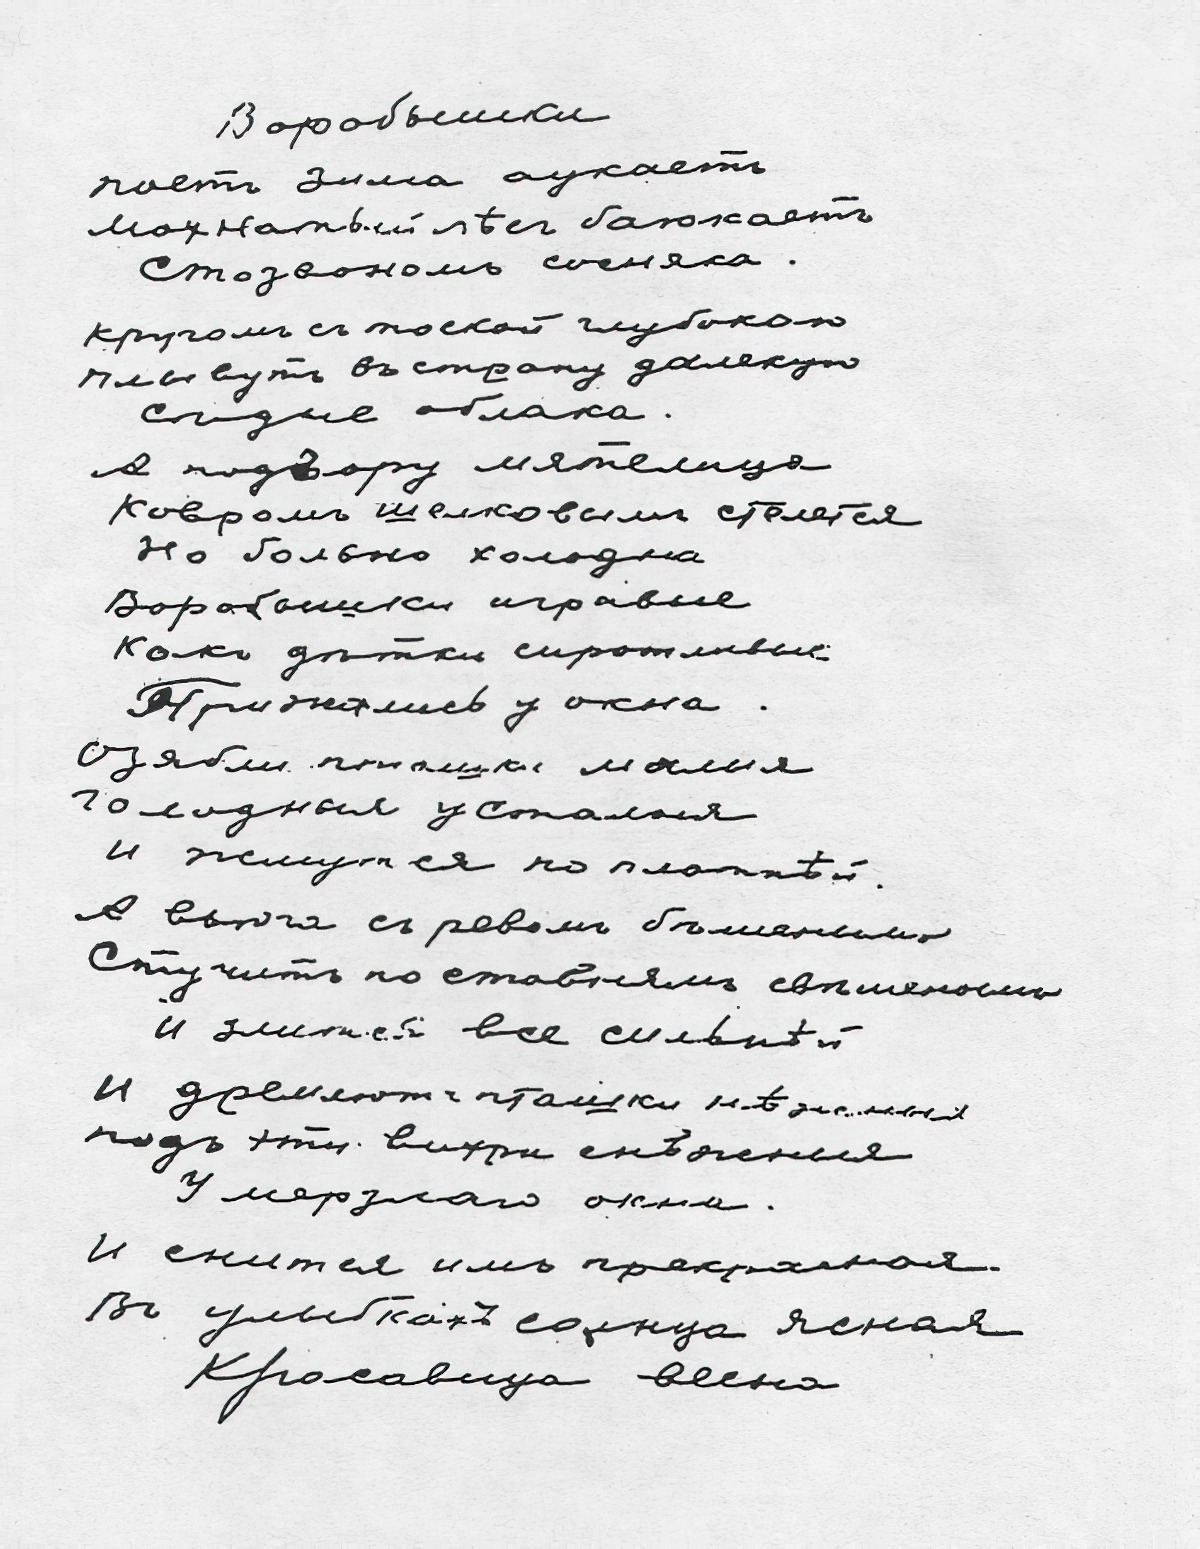 Воробышки
поетъ зима аукаетъ
мохнатый лѣсъ баюкаетъ
Стозвономъ сосняка.
кругомъ съ тоской глубокою
плывутъ въ страну далекую
Сѣдые облака.
А по двору мятелица
Ковромъ шелковымъ стелется
Но больно холодна
Воробышки игравые
Какъ дѣтки сиротливые
Прижались у окна.
Озябли пташки малыя
голодныя усталыя
и жмутся по плотнѣй.
А вьюга съ ревомъ бѣшенымъ
Стучитъ по ставнямъ свѣшенымъ
и злится все сильнѣй
И дремлютъ пташки нѣжныя
подъ эти вихри снѣжныя
У мерзлаго окна.
И снится имъ прекрасная
Въ улыбкахъ солнца ясная
Красавица весна